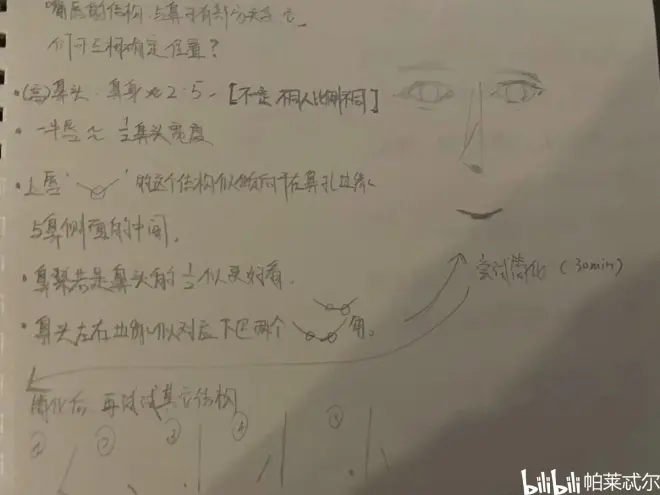 嘴唇的结构,与鼻子有部分关系
何可三构确定位置?
·(高)鼻头:鼻身≈2:5-[不定 不同人比例不同]
·一半唇≈1/2鼻头宽度
·上唇 的这个结构似倾向于在鼻孔边缘
与鼻侧面的中间,
·鼻梁若是鼻头的1/2似更好看.
·鼻头左右边缘似对应下巴两个 角。
尝试简化(30min)
简化后 再试试其它结构
① ② ③ ④
bilibili 帕莱忒尔